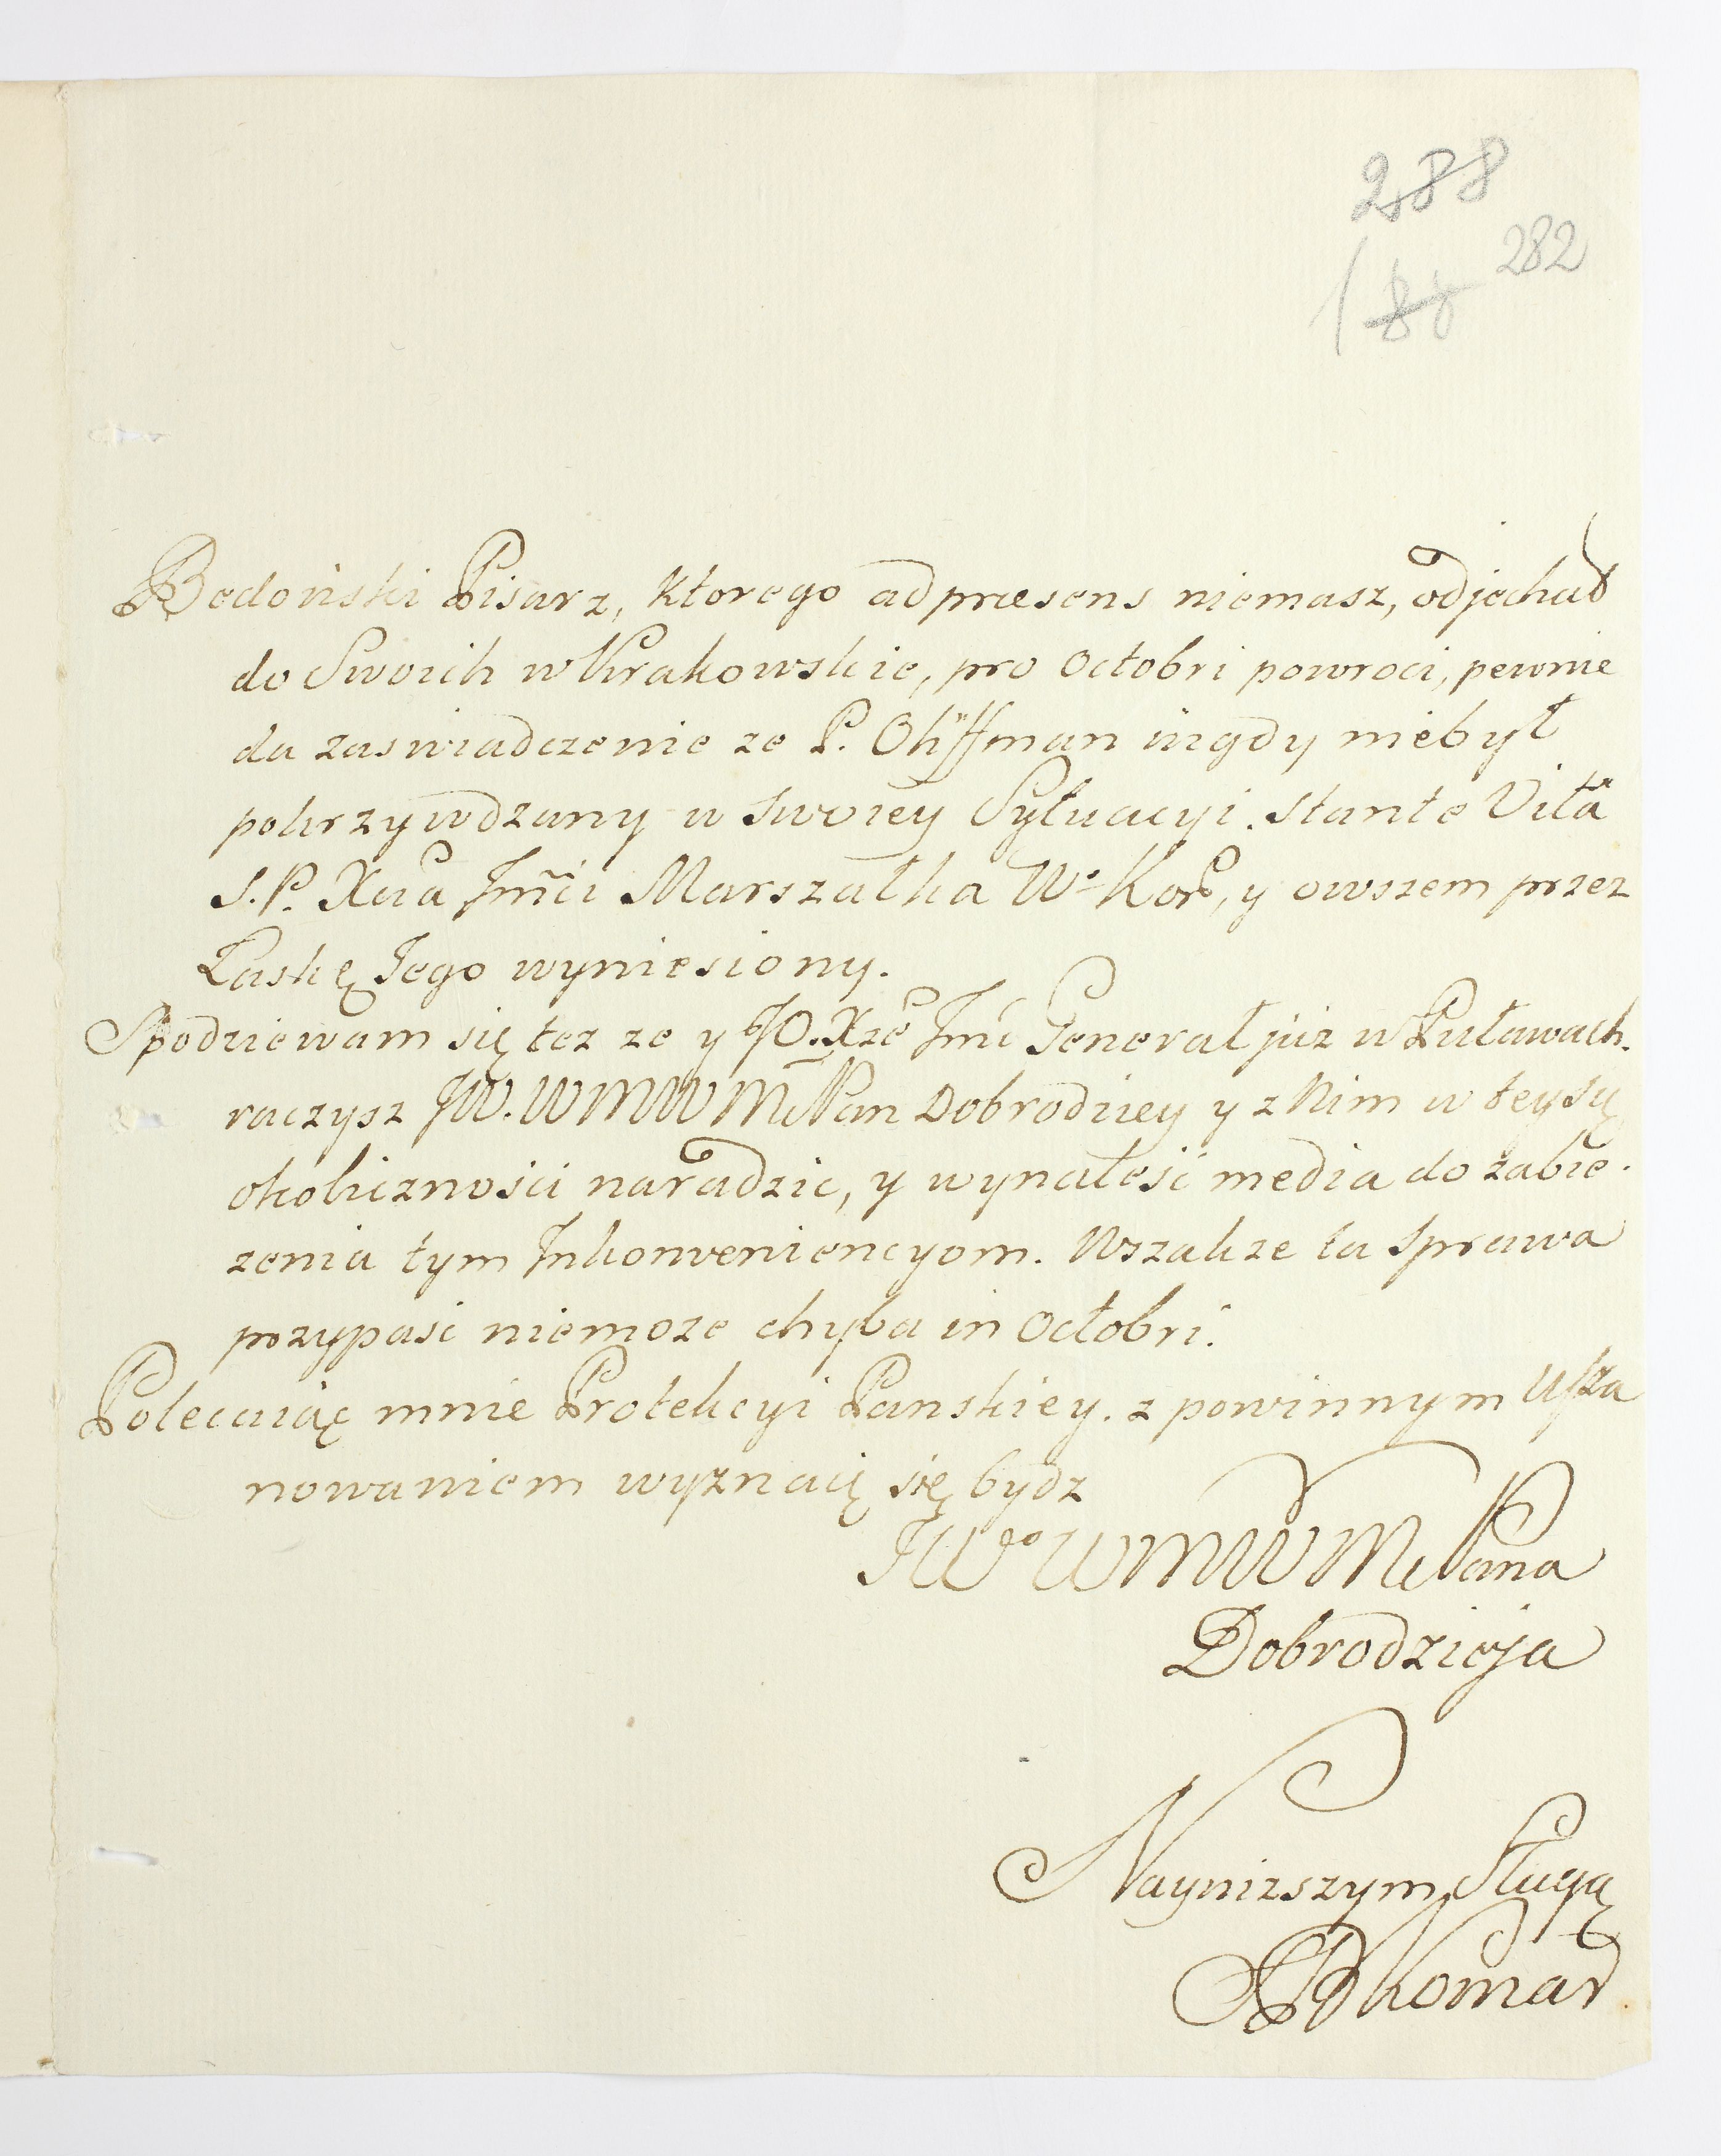 288
282
188
Bedoński Pisarz, ktorego ad præsens niemasz, odjechał
do Swoich w Krakowskie, pro Octobri powroci, pewnie
da zaswiadczenie ze P. Ohffman nigdy niebył
pokrzywdzany w swoiey Sytuacyi. stante Vitâ
S. P. Xcia Jmci Marszałka Wo Kor, y owszem przez
Łaskę Jego wyniesiony.
Spodziewam się tez ze y JO. Xzê Jmć Generał już w Puławach.
raczysz JW. WMWM Pan Dobrodziey y z Nim w teysię
okoliczności naradzic, y wynaleść media do zabie-
zenia tym Inkonveniencyom. Wszakze ta sprawa
przypaść niemoze chyba in Octobri.
Polecaiąc mnie Protekcyi Panskiey. z powinnym Usza
nowaniem wyznacię się bydz
JWo WMWM Pana
Dobrodzieja
Nayniższym Sługą
Komar